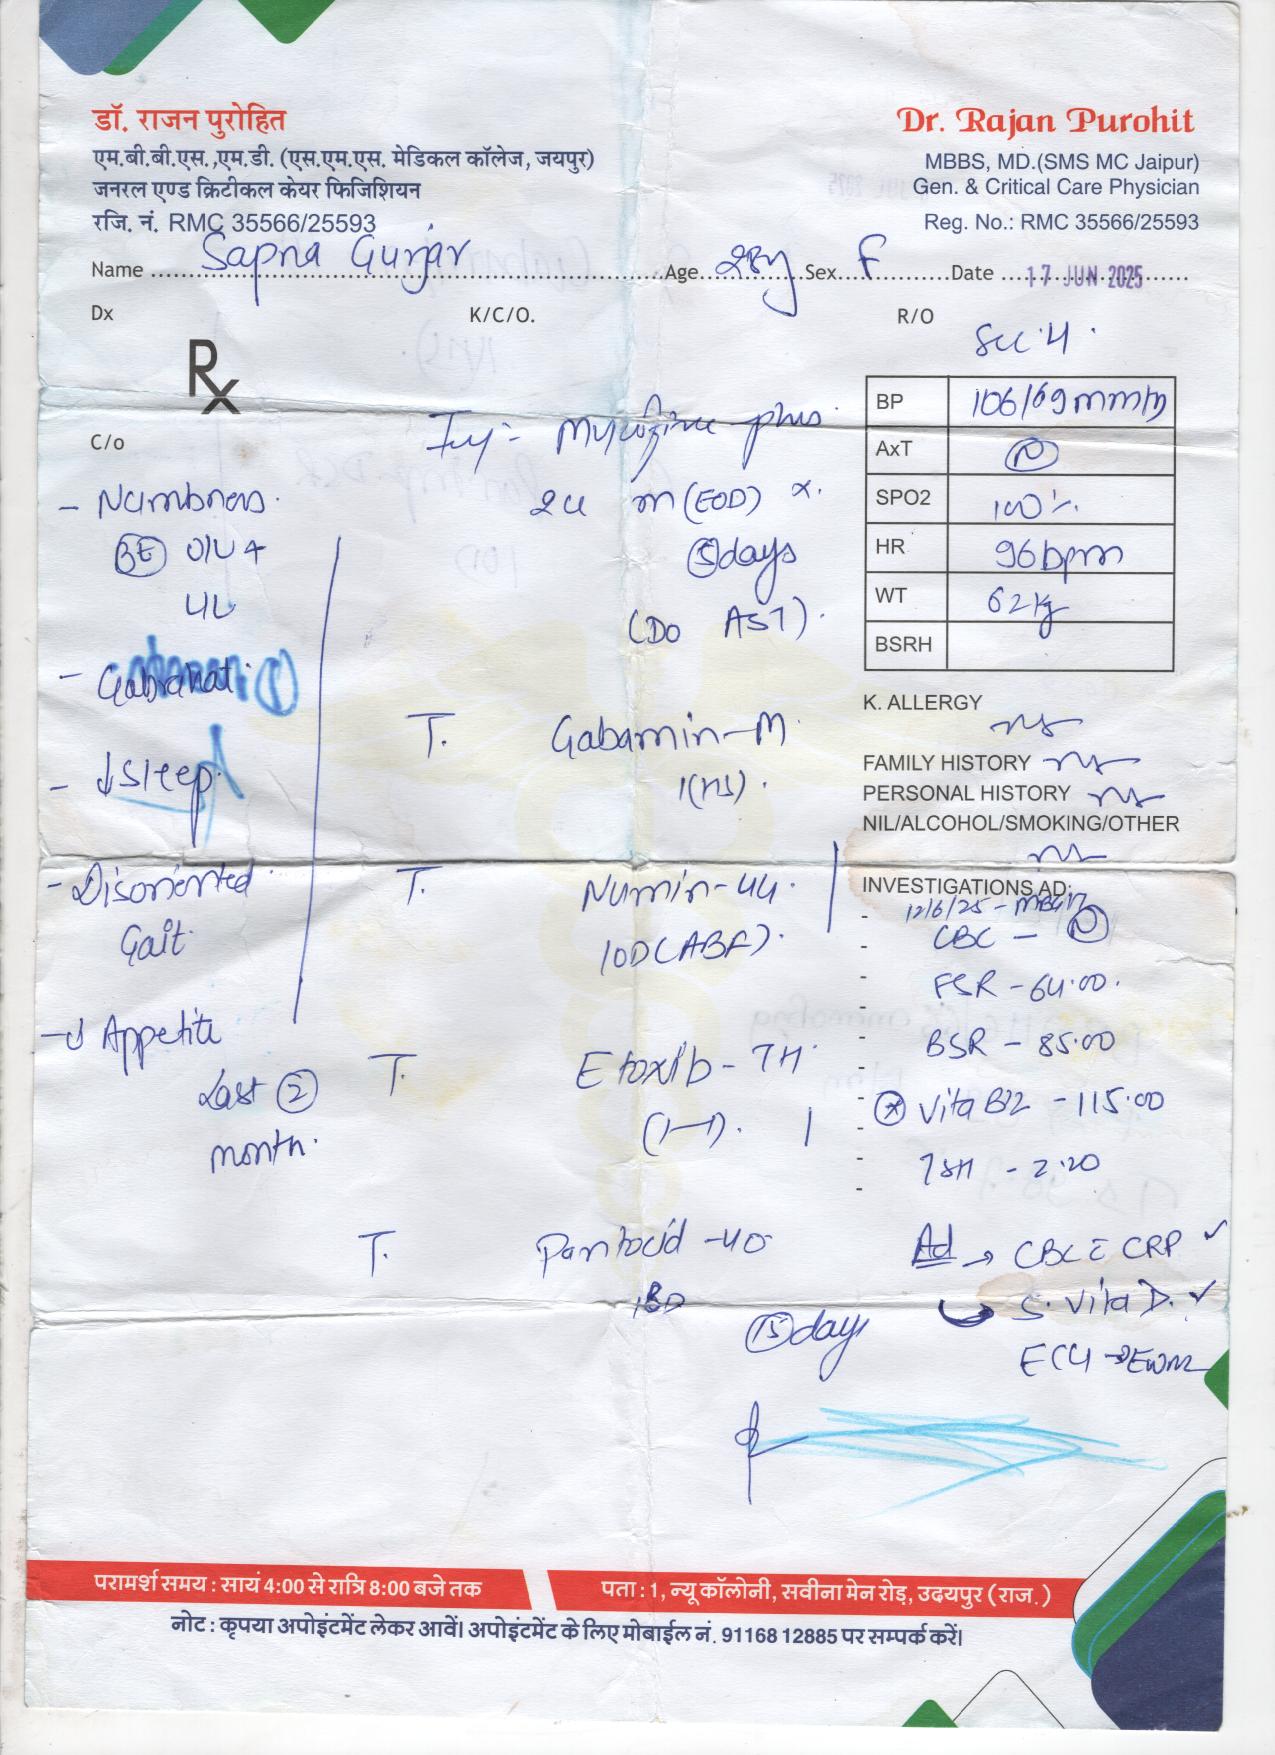 डॉ. राजन पुरोहित
एम.बी.बी.एस.,एम.डी. (एस.एम.एस. मेडिकल कॉलेज, जयपुर)
जनरल एण्ड क्रिटीकल केयर फिजिशियन
रजि. नं. RMC 35566/25593
Dr. Rajan Purohit
MBBS, MD.(SMS MC Jaipur)
Gen. & Critical Care Physician
Reg. No.: RMC 35566/25593
Name Sapna Gurjar Age 28y Sex F Date 17 JUN 2025
Dx K/C/O. R/O
Rx
C/o
- Numbness.
- Gabrahat
- ↓ Sleep.
- Disoriented
Gait.
- ↓ Appetite
Last 2
month.
Inj:- plus
(EOD) x.
5 days
(Do AST).
T. Gabamin-M
1(HS).
T. Numin-44.
1OD(ABF).
T. Etoxib-TH
(1-1).
T. Pantocid-40
1BD
15 days
BP 106/69 mmHg
AxT N
SPO2 100%
HR 96 bpm
WT 62 kg
BSRH
K. ALLERGY
FAMILY HISTORY
PERSONAL HISTORY
NIL/ALCOHOL/SMOKING/OTHER
INVESTIGATIONS AD:
12/6/25 - MBGH
CBC - N
ESR - 64.00.
BSR - 85.00
* Vita B12 - 115.00
TSH - 2.20
Ad → CBC c̄ CRP ✓
S. Vita D. ✓
परामर्श समय : सायं 4:00 से रात्रि 8:00 बजे तक
पता : 1, न्यू कॉलोनी, सवीना मेन रोड़, उदयपुर (राज.)
नोट : कृपया अपोइंटमेंट लेकर आवें। अपोइंटमेंट के लिए मोबाईल नं. 91168 12885 पर सम्पर्क करें।